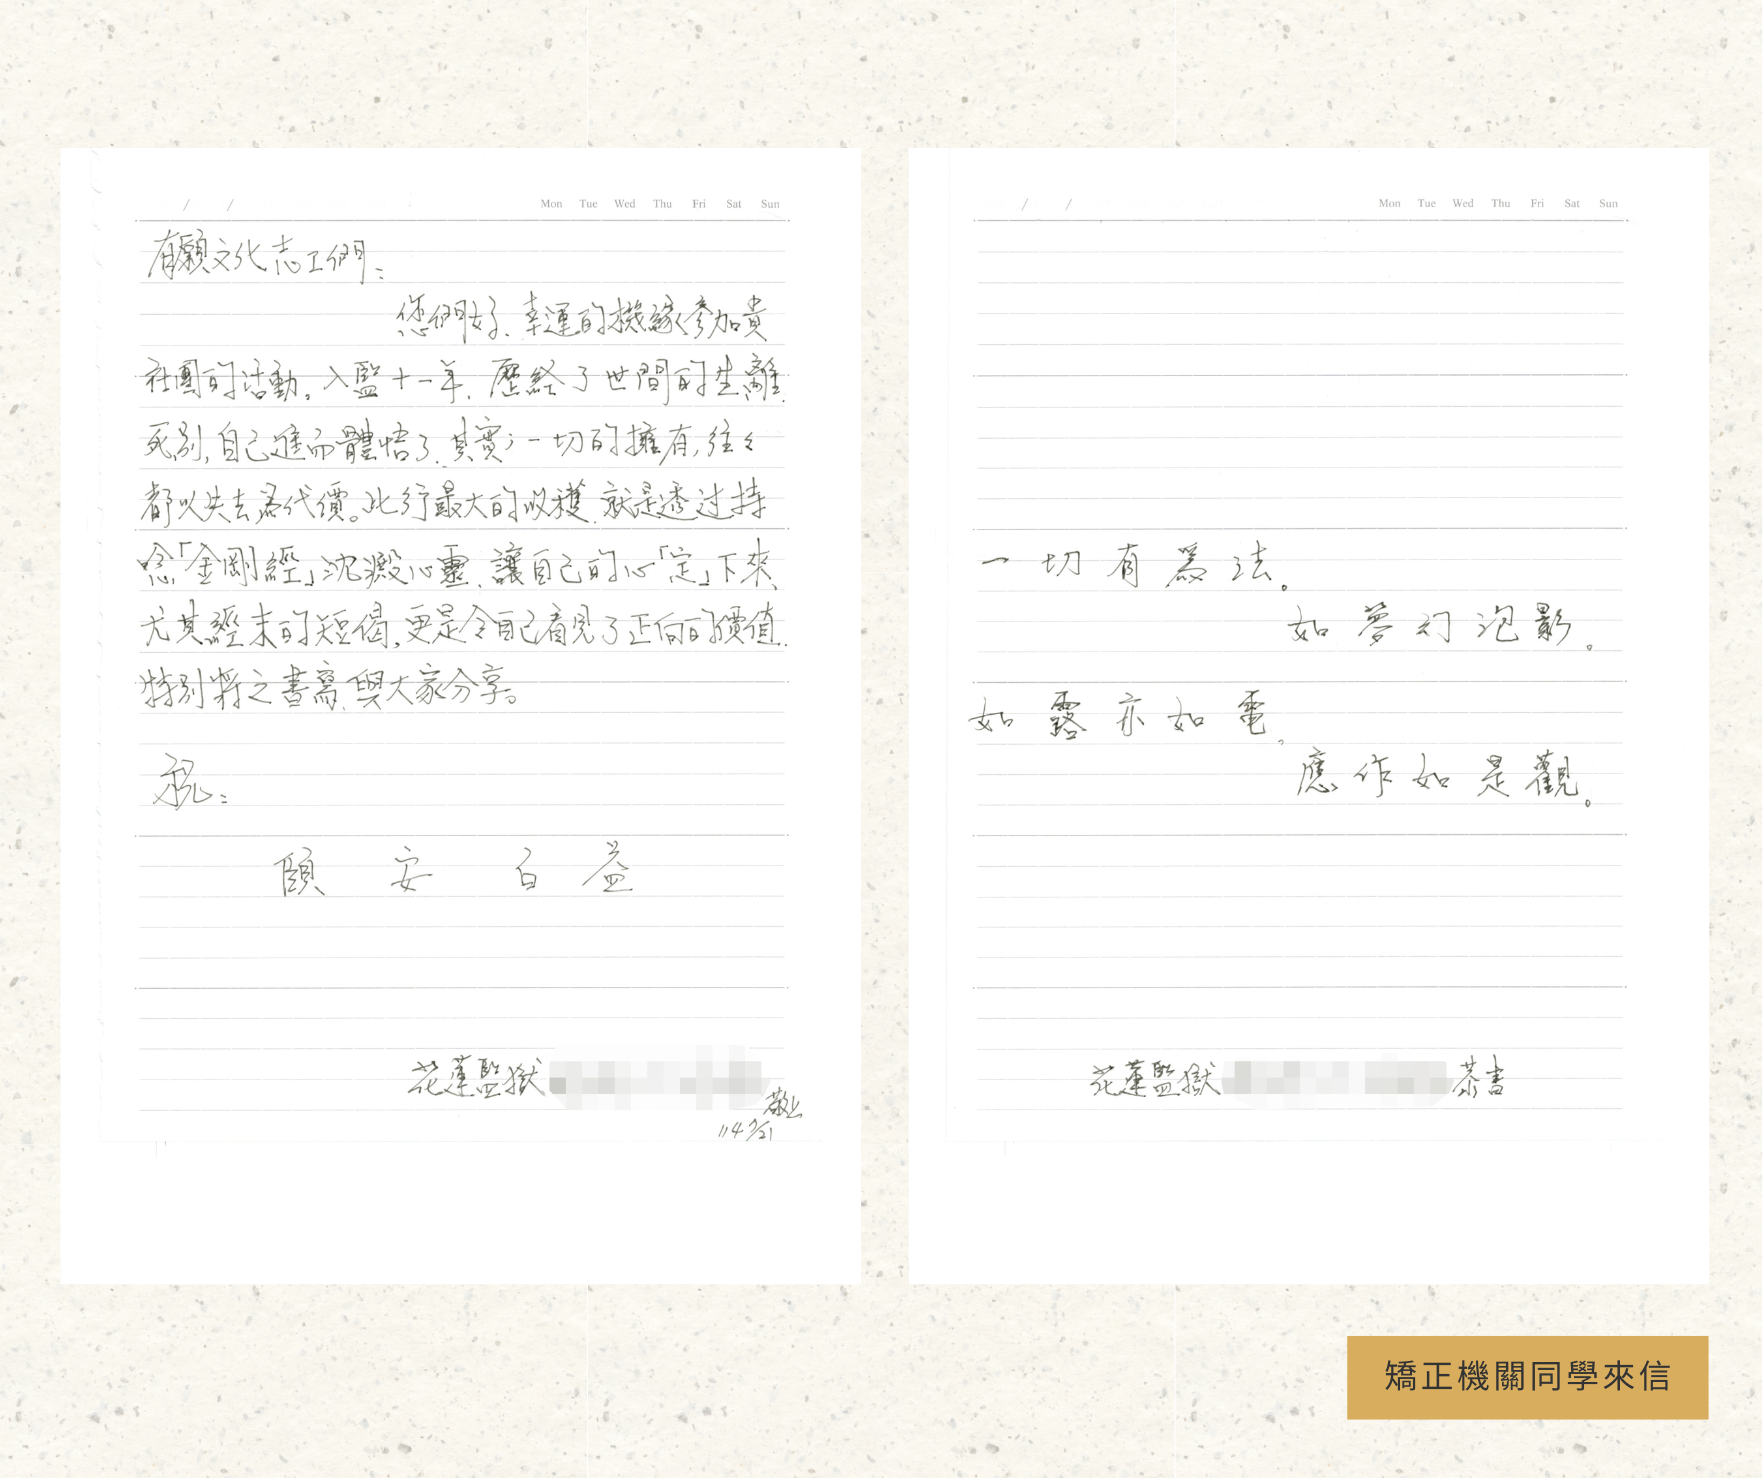 / / Mon Tue Wed Thu Fri Sat Sun
有願文化志工們:
您們好、幸運的機緣參加貴
社團的活動。入監十一年、歷經了世間的生離
死別,自己進而體悟了、其實;一切的擁有,往々
都以失去為代價。此行最大的收穫、就是透过持
唸「金剛經」沈澱心靈、讓自己的心「定」下來、
尤其經末的短偈,更是令自己看見了正向的價值、
特別將之書寫、與大家分享。
祝:
頤 安 百 益
花蓮監獄
敬上
114 /21
/ / Mon Tue Wed Thu Fri Sat Sun
一切有為法。
如夢幻泡影。
如露亦如電,
應作如是觀。
花蓮監獄 恭書
矯正機關同學來信